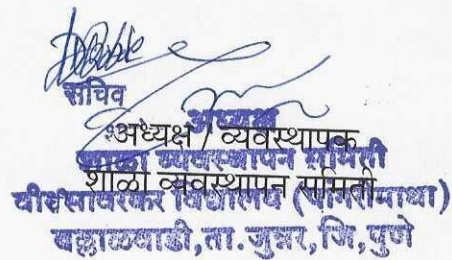 सचिव
अध्यक्ष
अध्यक्ष / व्यवस्थापक
शाळा व्यवस्थापन समिती
शाळा व्यवस्थापन समिती
वीरसावरकर विद्यालय
बल्लाळवाडी,ता.जुन्नर,जि,पुणे